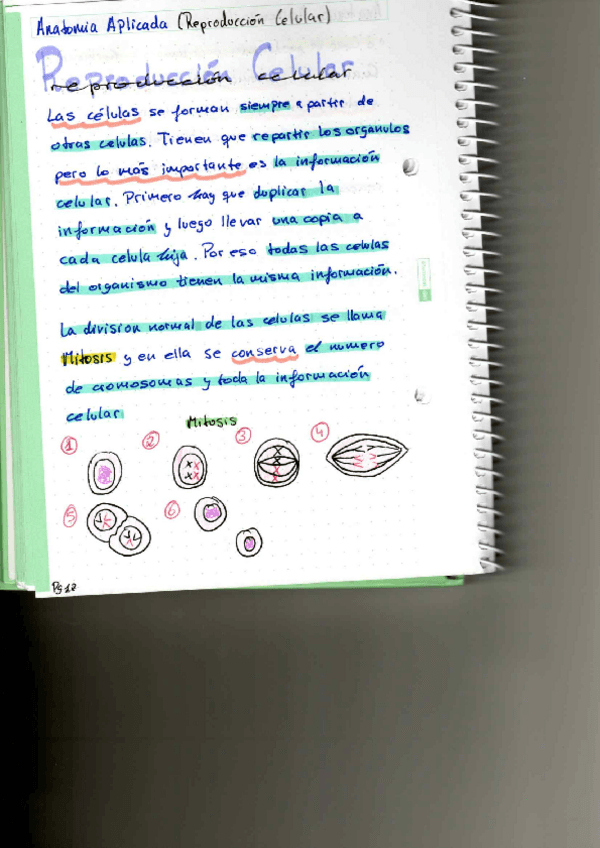 Anatomia Aplicada (Reproducción Celular)
Reproducción Celular
reproducción celular
Las células se forman siempre a partir de
otras celulas. Tienen que repartir los organulos
pero lo más importante es la información
celular. Primero hay que duplicar la
información y luego llevar una copia a
cada celula hija. Por eso todas las celulas
del organismo tienen la misma información.
La division normal de las celulas se llama
Mitosis y en ella se conserva el numero
de cromosomas y toda la información
celular
Mitosis
1 2 3 4
5 6
Pg 12